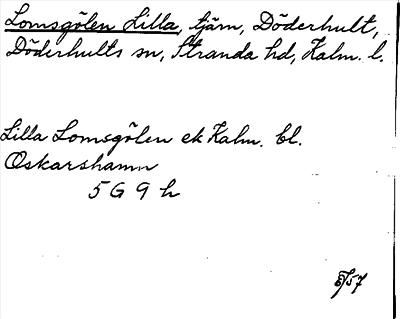 Lomsgölen Lilla, tjärn, Döderhult,
Döderhults sn, Stranda hd, Kalm. l.
Lilla Lomsgölen ek Kalm. bl.
Oskarshamn
5 G 9 h